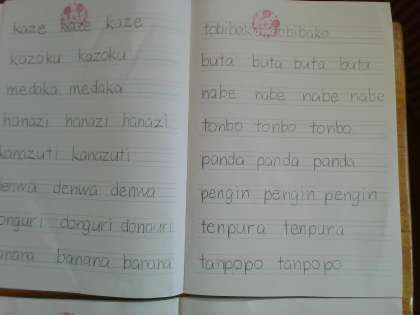 kaze kaze kaze
kazoku kazoku
medaka medaka
hanazi hanazi hanazi
kanazuti kanazuti
denwa denwa denwa
donguri donguri donguri
banana banana banana
tobibako tobibako
buta buta buta buta
nabe nabe nabe nabe
tonbo tonbo tonbo
panda panda panda
pengin pengin pengin
tenpura tenpura
tanpopo tanpopo